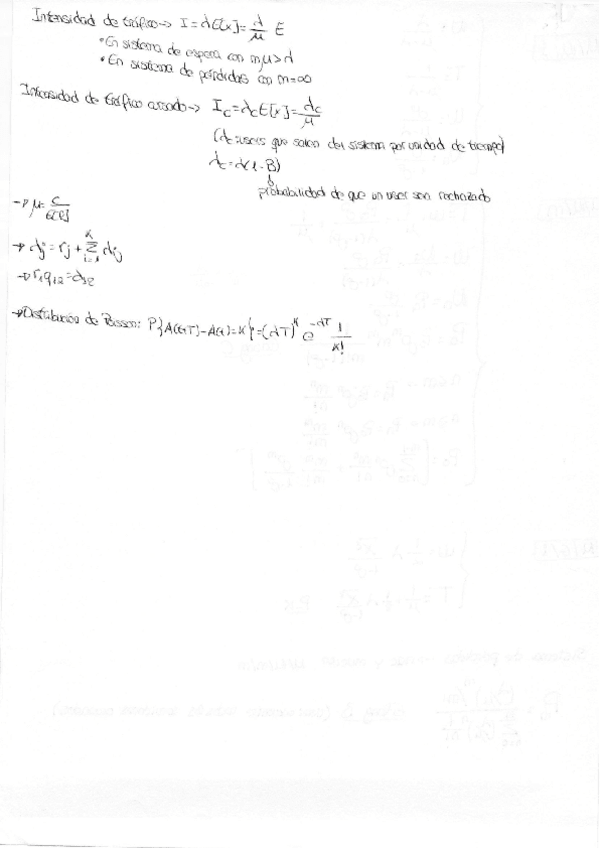 Intensidad de tráfico → I = λE[x] = λ/μ E
• En sistema de espera con mμ > λ
• En sistema de pérdidas con m = ∞
Intensidad de tráfico cursado → Ic = λc E[x] = λc/μ
(λc: users que salen del sistema por unidad de tiempo)
λc = λ(1 - B)
probabilidad de que un user sea rechazado
→ μ = C/E[L]
→ λj = rj + Σ λij
→ r1 q12 = λ12
→ Distribución de Poisson: P{A(t+T) - A(t) = K} = (λT)^K e^-λT 1/K!